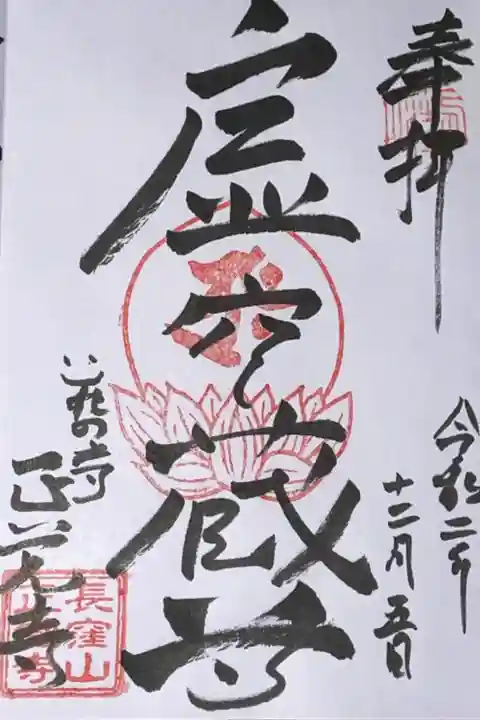 奉拝
令和二年
十二月五日
虚空蔵尊
正覚寺
長窪山
正覚寺